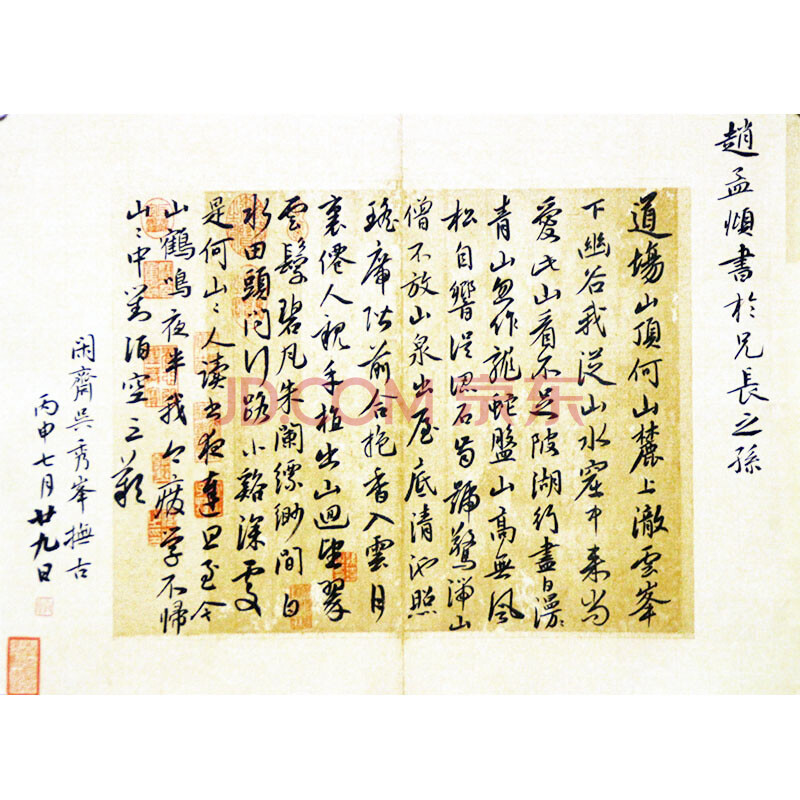 趙孟頫書於兄長之孫
道場山頂何山麓上澈雲峯
下幽谷我從山水窟中来尚
愛此山看不足陂湖行盡白漫〻
青山忽作龍蛇盤山高無風
松自響誤認石齒號驚湍山
僧不放山泉出屋底清池照
瑤席階前合抱香入雲月
裏僊人親手植出山迴望翠
雲鬟碧瓦朱闌縹緲間白
水田頭問行路小谿深處
是何山〻人讀書夜達旦至今
山鶴鳴夜半我今廢學不歸
山〻中對酒空三歎
閑齋吳秀峯撫古
丙申七月廿九日
JD.COM 京东